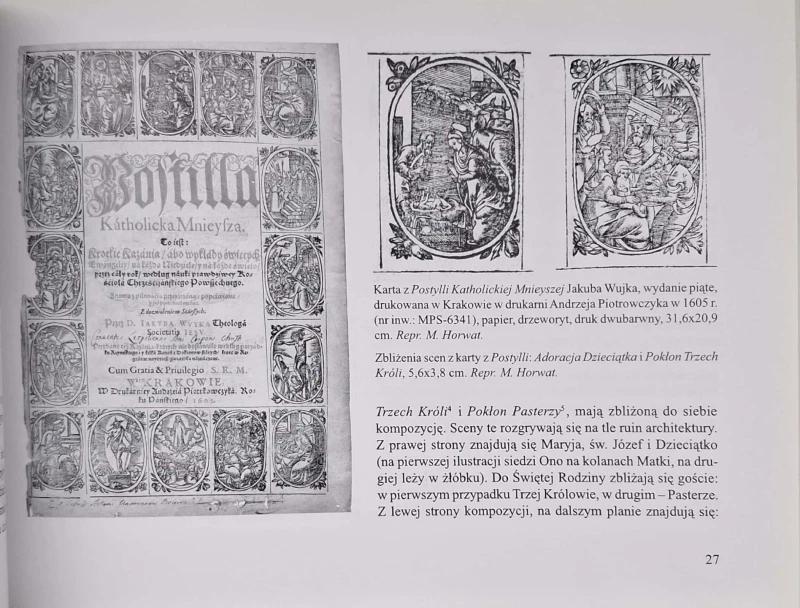 Postilla
Kátholicka Mnieyſza.
To ieſt:
Krotkie Kazánia / ábo wykłády świętych
Ewángeliy / ná káżdą Niedzielę / y ná káżde święto /
przez cáły rok / według náuki práwdźiwey Ko-
śćiołá Chrześćijáńſkiego Powſzechnego.
Z dozwoleniem Stárſzych.
Przez D. IAKVBA WVYKA Theologá
Societatis IESV.
Cum Gratia & Priuilegio S. R. M.
W KRAKOWIE
W Drukárniey Andrzeiá Piotrkowczyká. Ro-
ku Páńſkiego / 1605.
Karta z Postylli Katholickiej Mnieyszej Jakuba Wujka, wydanie piąte,
drukowana w Krakowie w drukarni Andrzeja Piotrowczyka w 1605 r.
(nr inw.: MPS-6341), papier, drzeworyt, druk dwubarwny, 31,6x20,9
cm. Repr. M. Horwat.
Zbliżenia scen z karty z Postylli: Adoracja Dzieciątka i Pokłon Trzech
Króli, 5,6x3,8 cm. Repr. M. Horwat.
Trzech Króli⁴ i Pokłon Pasterzy⁵, mają zbliżoną do siebie
kompozycję. Sceny te rozgrywają się na tle ruin architektury.
Z prawej strony znajdują się Maryja, św. Józef i Dzieciątko
(na pierwszej ilustracji siedzi Ono na kolanach Matki, na dru-
giej leży w żłóbku). Do Świętej Rodziny zbliżają się goście:
w pierwszym przypadku Trzej Królowie, w drugim – Pasterze.
Z lewej strony kompozycji, na dalszym planie znajdują się:
27